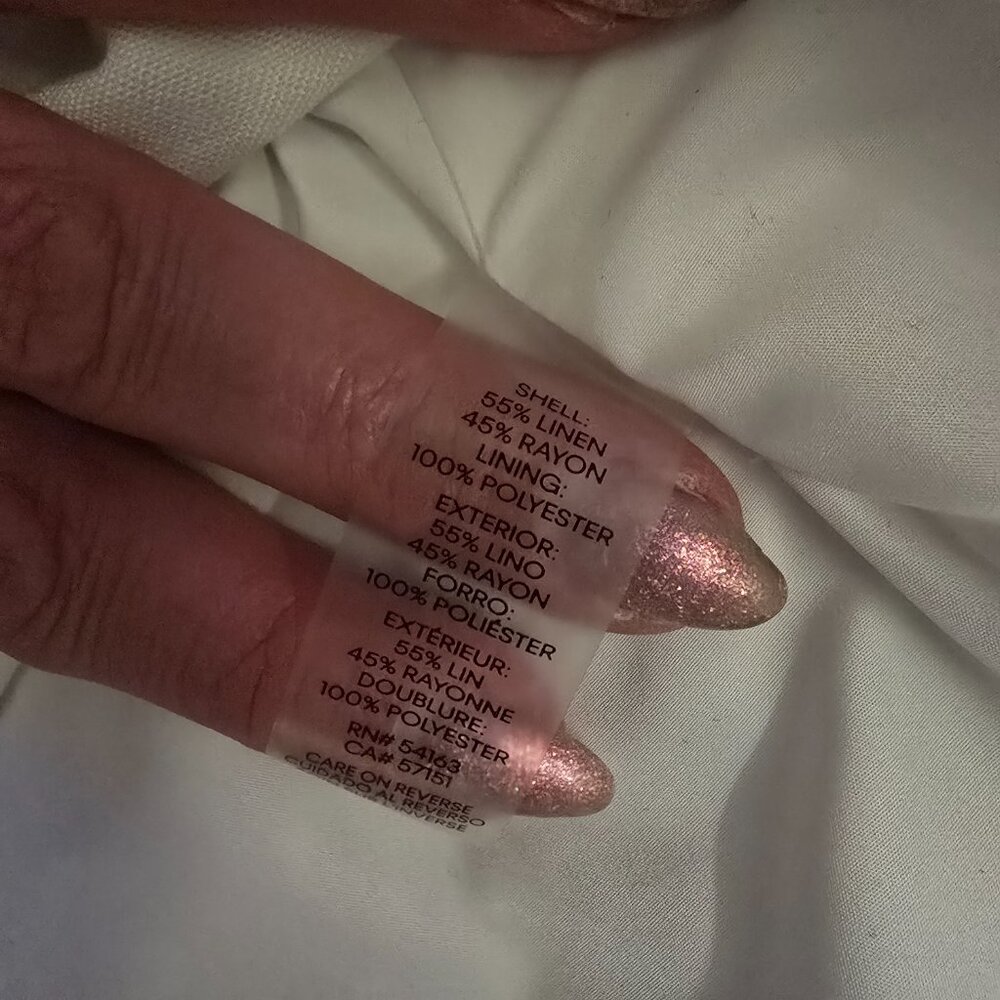 SHELL:
55% LINEN
45% RAYON
LINING:
100% POLYESTER
EXTERIOR:
55% LINO
45% RAYON
FORRO:
100% POLIÉSTER
EXTÉRIEUR:
55% LIN
45% RAYONNE
DOUBLURE:
100% POLYESTER
RN# 54163
CA# 57151
CARE ON REVERSE
CUIDADO AL REVERSO